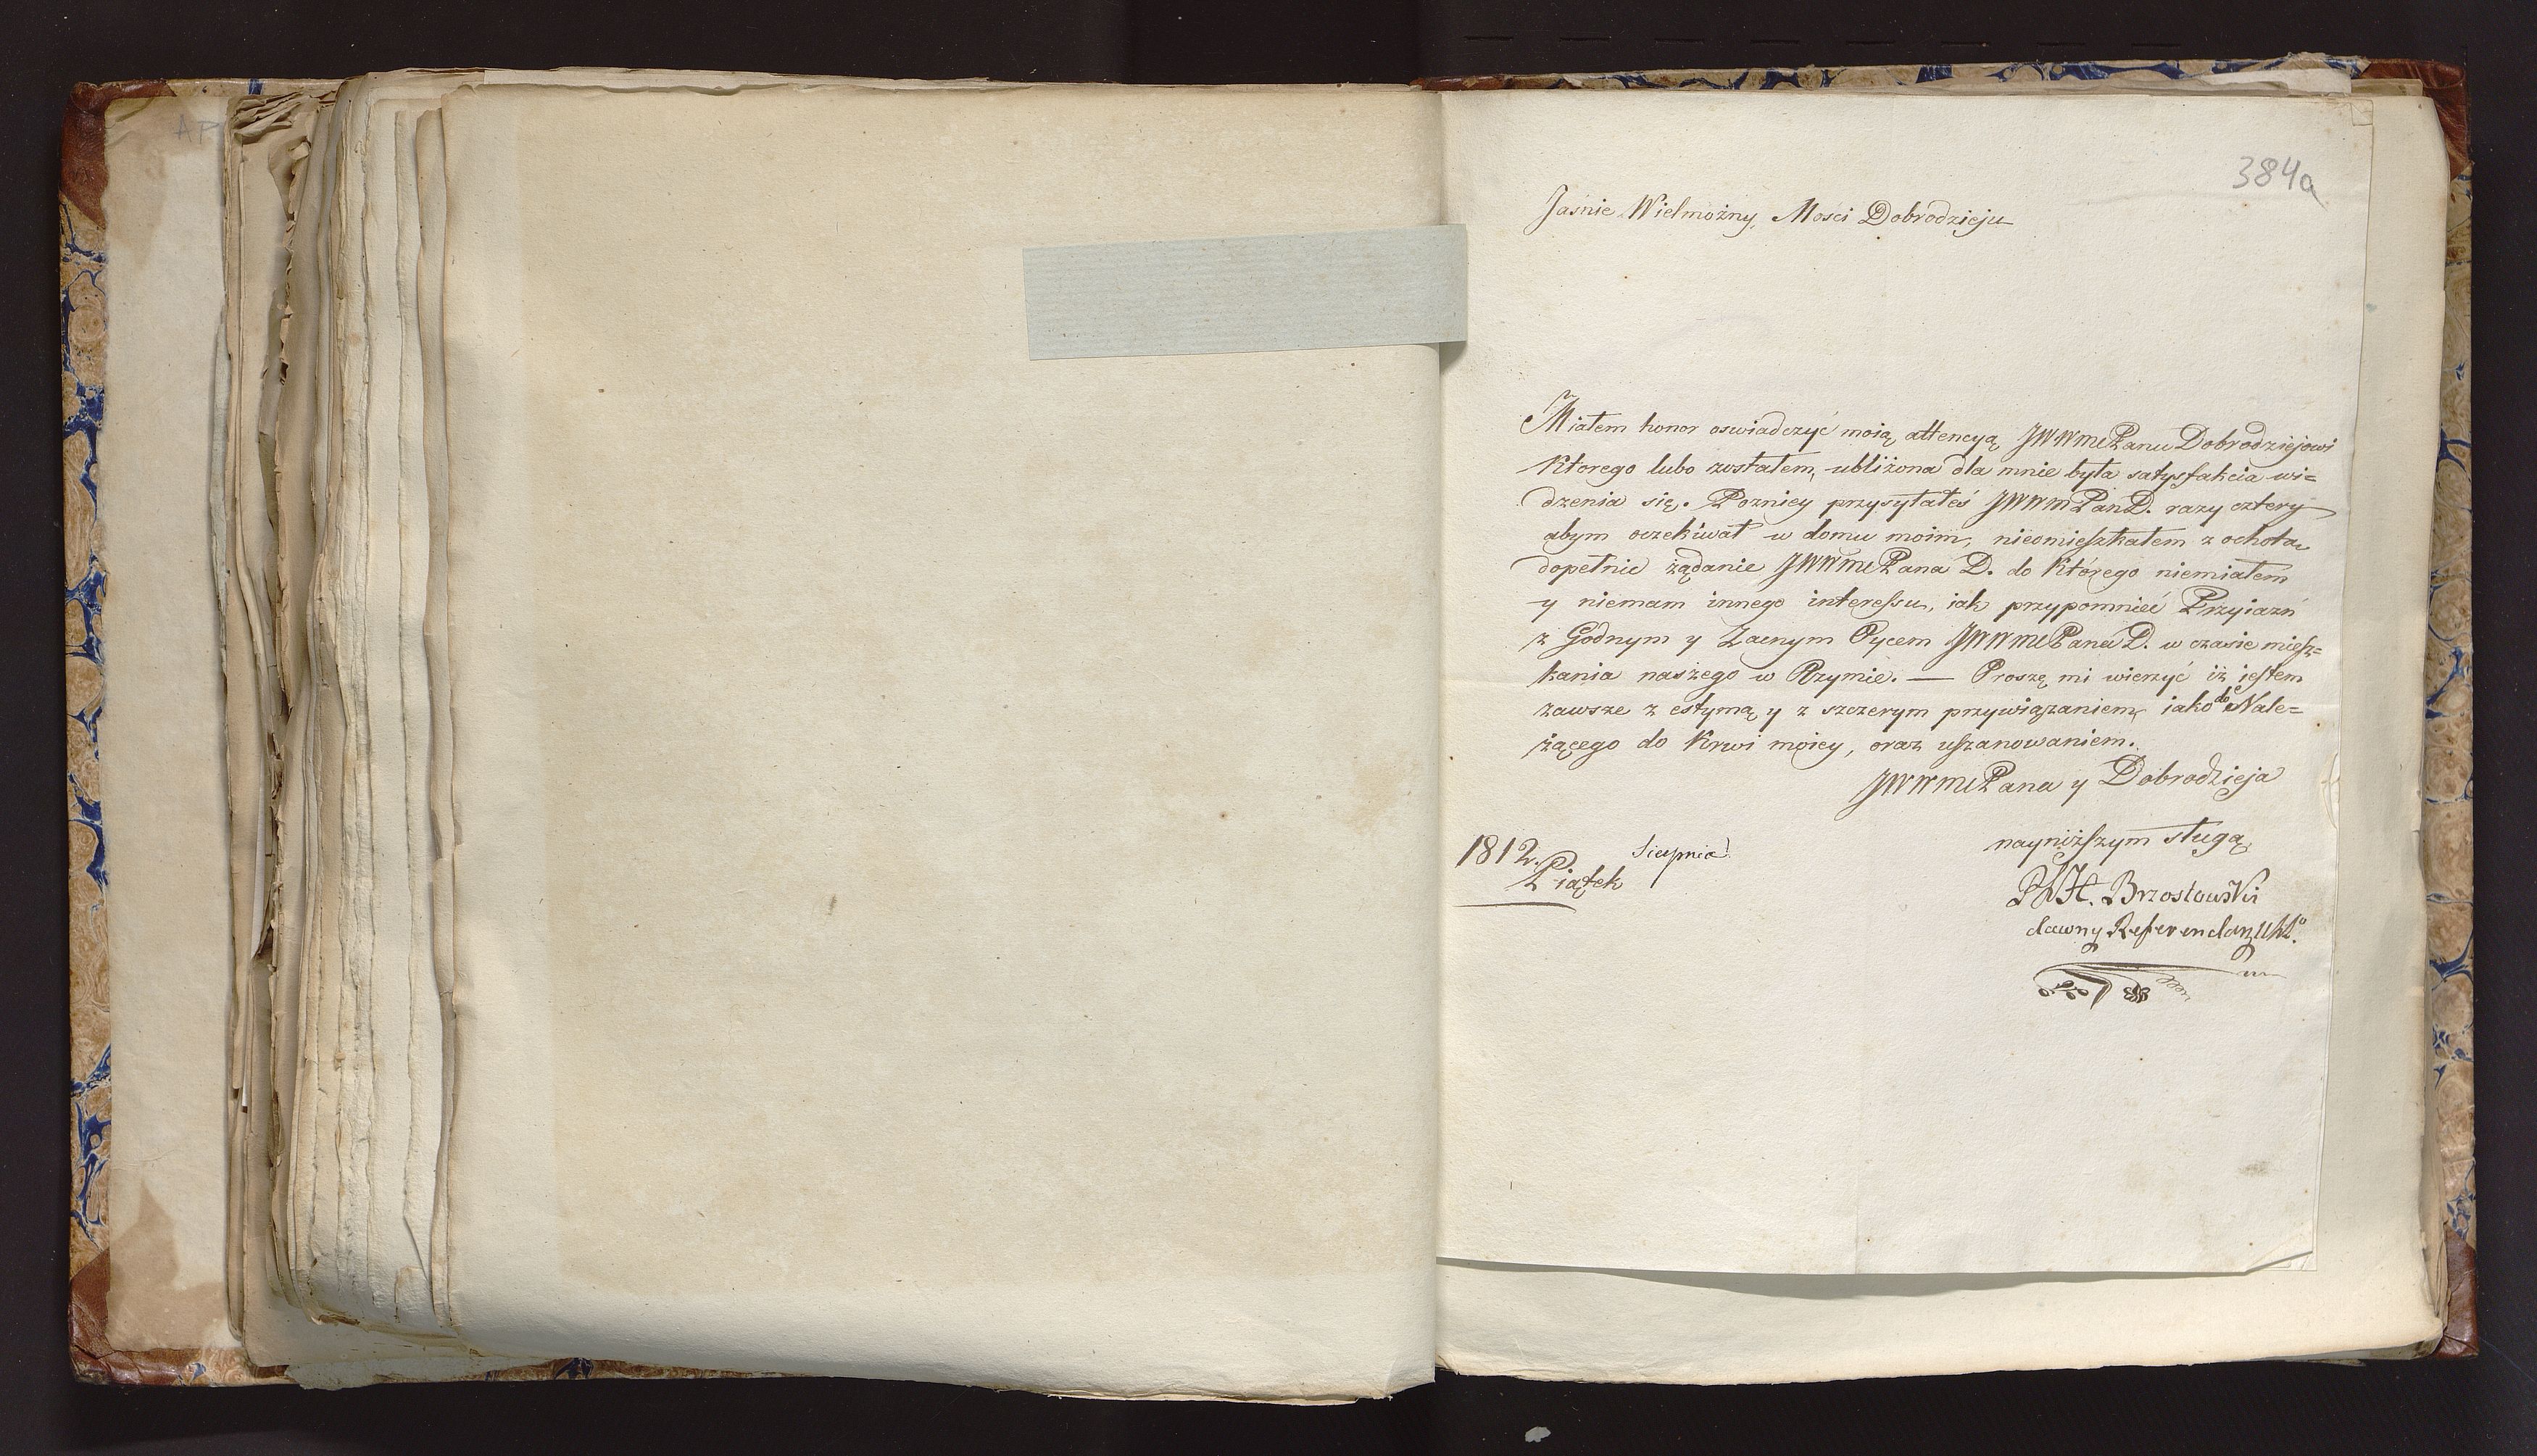 384a
Jaśnie Wielmożny, Mosci Dobrodzieju
Miałem honor oswiadczyć moią attencyą JWWmPanu Dobrodziejowi
Ktorego lubo zostałem, ubliżona dla mnie była satysfakcia wi=
dzenia się. Pozniey przysyłałeś JWWmPan D. razy cztery
abym oczekiwał w domu moim, nieomieszkałem z ochotą
dopełnić żądanie JWWmPana D. do Którego niemiałem
y niemam innego interessu, iak przypomnieć Przyiazń
z Godnym y Zacnym Oycem JWWmPana D. w czasie miesz=
kania naszego w Rzymie. — Proszę mi wierzyć iż iestem
zawsze z estymą y z szczerym przywiązaniem, iako do Nale=
żącego do Krwi moiey, oraz uszanowaniem.
JWWmPana y Dobrodzieja
nayniższym sługą
1812. Sierpnia
Piątek
Brzostowski
dawny Referendarz